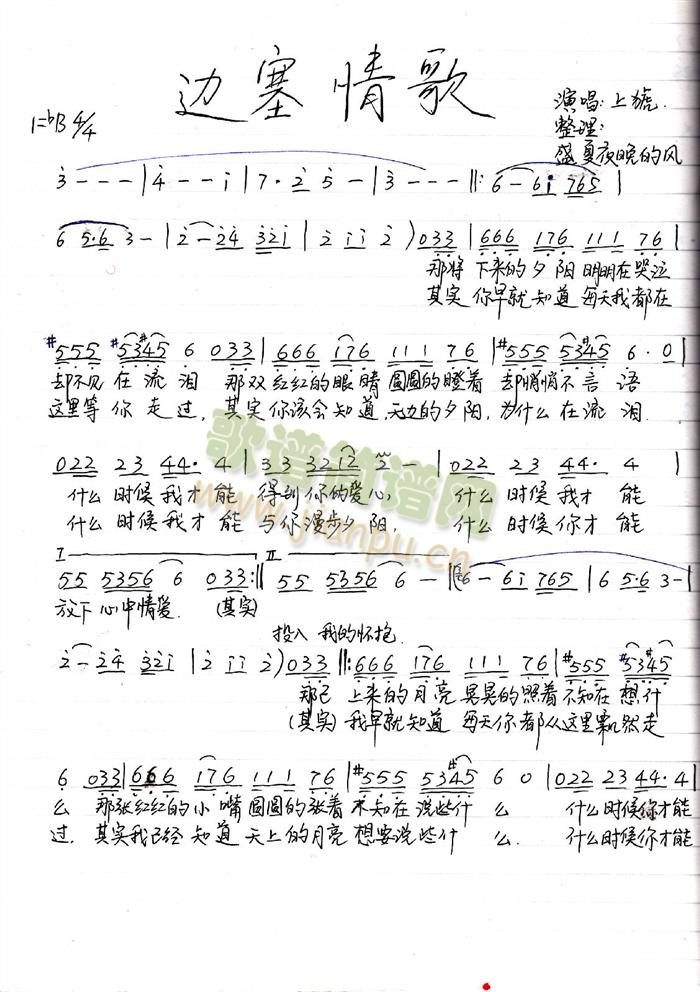 边塞情歌
1=♭B 4/4
演唱:上
整理:
盛夏夜晚的风
3 - - - | 4 - - i | 7 · 2 5 - | 3 - - - ‖: 6 - 6i 765 |
6 5·6 3 - | 2 - 24 32i | 2 i i 2 ) 033 | 666 176 111 76 |
那将 下来的夕阳 明明在哭泣
其实 你早就知道 每天我都在
#555 534#5 6 033 | 666 176 111 76 | #555 534#5 6 · 0 |
却不见 在流泪 那双 红红的眼睛 圆圆的瞪着 却悄悄不言语
这里等 你走过, 其实 你该会知道, 无力的夕阳, 为什么在流泪.
022 23 44· 4 | 33 3212 2 - | 022 23 44· 4 |
什么 时候我才能 得到你的爱心, 什么 时候我才能
什么 时候我才能 与你漫步夕阳, 什么 时候你才能
I II
55 5356 6 033 :‖ 55 5356 6 - | 6 - 6i 765 | 6 5·6 3 - |
放下 心中情爱. (其实)
投入 我的怀抱.
2 - 24 32i | 2 i i 2 ) 033 ‖: 666 176 111 76 | #555 534#5
那已 上来的月亮 晃晃的照着 不知在想什
(其实) 我早就知道 每天你都从这里飘然走
6 033 | 666 176 111 76 | #555 534#5 6 0 | 022 23 44· 4 |
么 那张红红的小嘴 圆圆的张着 不知在说些什么 什么时候你才能
过. 其实我已经知道 天上的月亮 想要说些什么. 什么时候你才能
歌谱简谱网
www.jianpu.cn